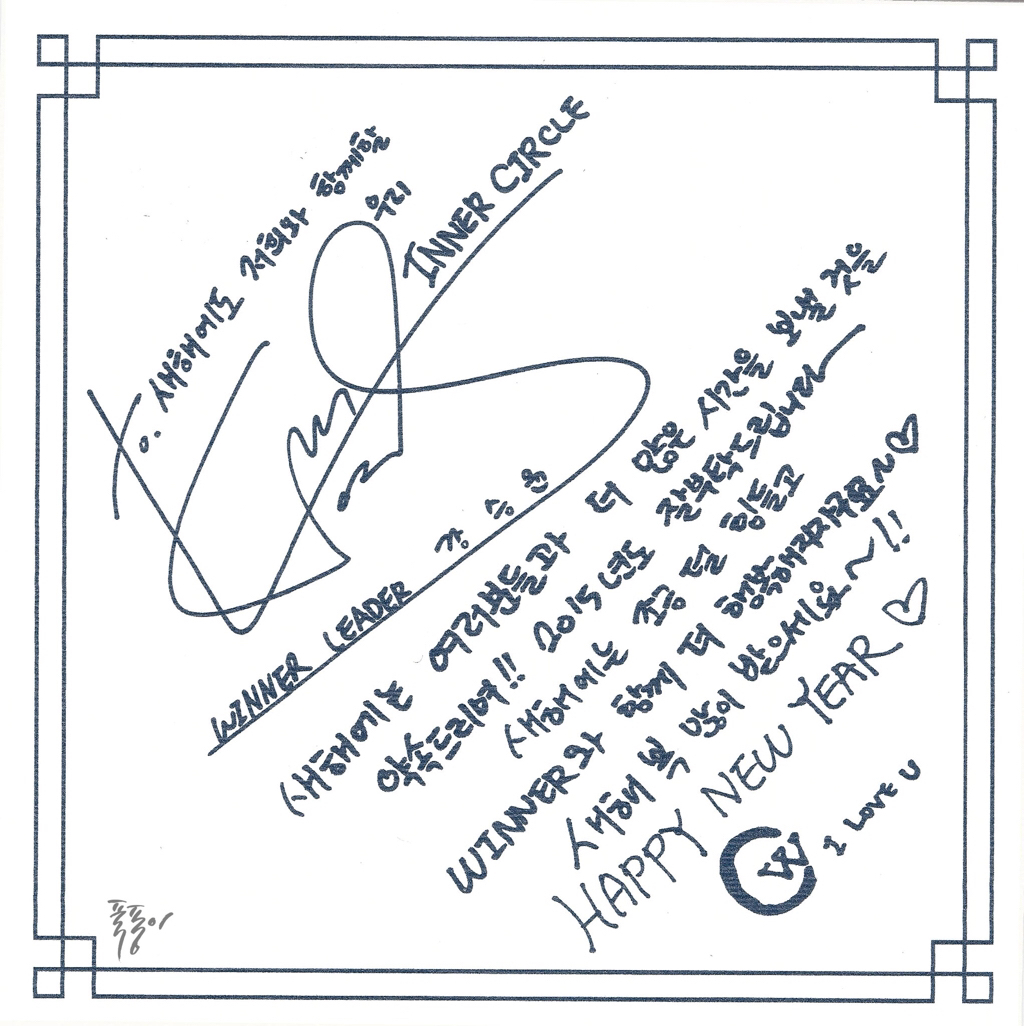 To. 새해에도 저희와 함께할
우리
INNER CIRCLE
WINNER LEADER 강승윤
새해에는 여러분들과 더 많은 시간을 보낼 것을
약속드리며!! 2015년도 잘부탁드립니다
새해에는 조금 덜 힘들고
WINNER와 함께 더 행복해지자구요~♡
새해 복 많이 받으세요~!!
HAPPY NEW YEAR♡
W I LOVE U